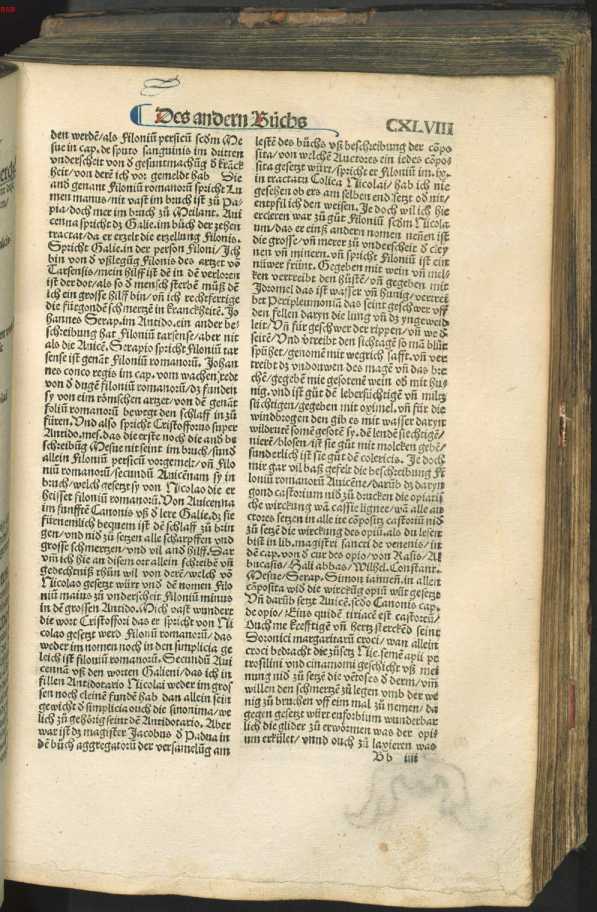 Des andern Büchs
CXLVIII
den werdē/als Filoniū persicū scđm Me
sue in cap. de sputo sanguinis im dritten
vnderscheit von d gesuntmachūg d kräck
heit/von derē ich vor gemeldt hab Sie
and genant Filoniū romanorū spricht Lu
men manus/nit vast im bruch ist zů Pa/
pia/doch mer im bruch zů Meilant. Aui
cenna spricht dz Galie.im bůch der zehen
tractat/da er erzelt die erzellung Filonis.
Spricht Galie.in der person Filoni/Ich
bin von d vßlegūg Filonis des artzet vō
Tarsensis/mein hilff ist dē in dē verloren
ist der dot/als so d mensch sterbē můß dē
ich ein grosse hilff bin/vñ ich rechtfertige
die fürgondē schmertzē in kranckheitē. Jo
hannes Serap.im Antido.ein ander be/
schreibung hat Filoniū tarsense/aber nit
als die Anicē. Serapio spricht Filoniū tar
sense ist genāt Filoniū romanorū. Johan
nes conco regis im cap. vom wachen/redt
von d dngē filoniū romanorū/dz funden
sy von eim römischen artzet/von dē genāt
foliū romanorū bewegt den schlaff in zů
füren. Vnd also spricht Cristofforus super
Antido.mes.das die erste noch die and bs
schreibūg Mesue nit seint im bruch/sund
allein Filoniū persicū vorgemelt/vñ Filo
niū romanorū/secundū Auicēnam sy in
bruch/welch gesetzt sy von Nicolao die er
heisset filoniū romanorū. Von Auicenna
im fünfftē Canonis vß d lere Galie.dz sie
fürnemlich bequem ist dē schlaff zů brin
gen/vnd nid zů setzen alle scharpffen vnd
grosse schmertzen/vnd vil and hilff. Dar
vm̄ ich hie an disem ort allein schreibē vñ
gedechtniß thůn wil von derē/welch vō
Nicolao gesetzt würt vnd dē nomen Filo
niū maius zů vnderscheit Filoniū minus
in dē grossen Antido. Mich vast wundert
die wort Cristoffori das er spricht von Ni
colao gesetzt werd Filoniū romanorū/das
weder im nomen noch in den simplicia ge
leich ist filoniū romanorū. Secundū Aui
cennā vß den worten Galieni/das ich in
fillen Antidotario Nicolai weder im gros
sen noch cleinē fundē hab dan allein sein
gewicht d simplicia ouch die sinonima/we
lich zů gehörig seint dē Antidotario. Aber
war ist dz magister Jacobus d Padua in
dē bůch aggregatorū der versamelūg am
lestē des bůchs vß beschreibung der cōpo
sita/von welchē Auctores ein iedes cōpos
sita gesetzt würt/spricht er Filoniū im.ix.
in tractatu Colica Nicolai/hab ich nie
gesehen ob ers am selben end setzt od nit/
entpfil ich den weisen. Je doch wil ich hie
ercleren war zů gůt Filoniū scđm Nicola
um/das er einß andern nomen nēnen ist
die grosse/vñ merer zů vnderscheit d cley
nen vñ minern. vñ spricht Filoniū ist ein
nüwer fründt. Gegeben mit wein vñ mels
ken vertreibt den hůstē/vñ gegeben mit
Idromel das ist wasser vñ hunig/vertreī
bet Peripleumonia das seint geschwer vff
den fellen daryn die lung vñ dz yngeweid
leit/Vñ für geschwer der rippen/vñ we d
seitē/Vnd vtreibt den sichtagē so mā blůt
spühet/genomē mit wegrich safft. vñ ver
treibt dz vndouwen des magē vñ das bre
chē/gegebē mit gesotenē wein ob mit hu
nig. vnd ist gůt dē lebersüchtigē vñ miltz
süchtigen/gegeben mit oximel. vñ für die
windbrogen den gib es mit wasser daryn
wildrutē somē gesotē sy. dē lendē siechtigē/
nierē/blosen/ist sie gůt mit molcken gebē/
sunderlich ist sie gůt dē colericis. Je doch
mir gar vil baß gefelt die beschreibung Fi
loniū romanorū Auicēne/darūb dz daryn
gond castorium nid zů drucken die opiaris
che wirckung wā cassie lignee/wā alle au
ctores setzen in alle ire cōpositz castoriū nid
zů setzē die wirckung des opiū.als du lesen
bist in lib.magistri sancti de venenis/in
dē cap.von d cur des opio/von Rasis/Al
bucasis/Hali abbas/Wilhel. Constant.
Mesue/Serap. Simon ianuen̄.in allen
cōposita wid die wirckūg opiū würt gesetzt
Vñ darūb setzt Auicē.scđo Canonis cap.
de opio/Eius quidē tiriacē est castoreū/
Duch me krefftigē vñ hertz sterckēd seint
Doronici margaritarū croci/wan allein
croci bedracht die zůsetz Nic. semē apii pe
trosilini vnd cinamomi geschicht vß mei
nung nid zů setzē die vētoses d derm/vm
willen den schmertzē zů legen vmb der we
nig zů bruchen vff ein mal zů nemen/da
gegen gesetzt würt enforbium wunderbar
lich die glider zů erwörmen was der opi
um erkület/vnnd ouch zů laxieren was
Bb iiii